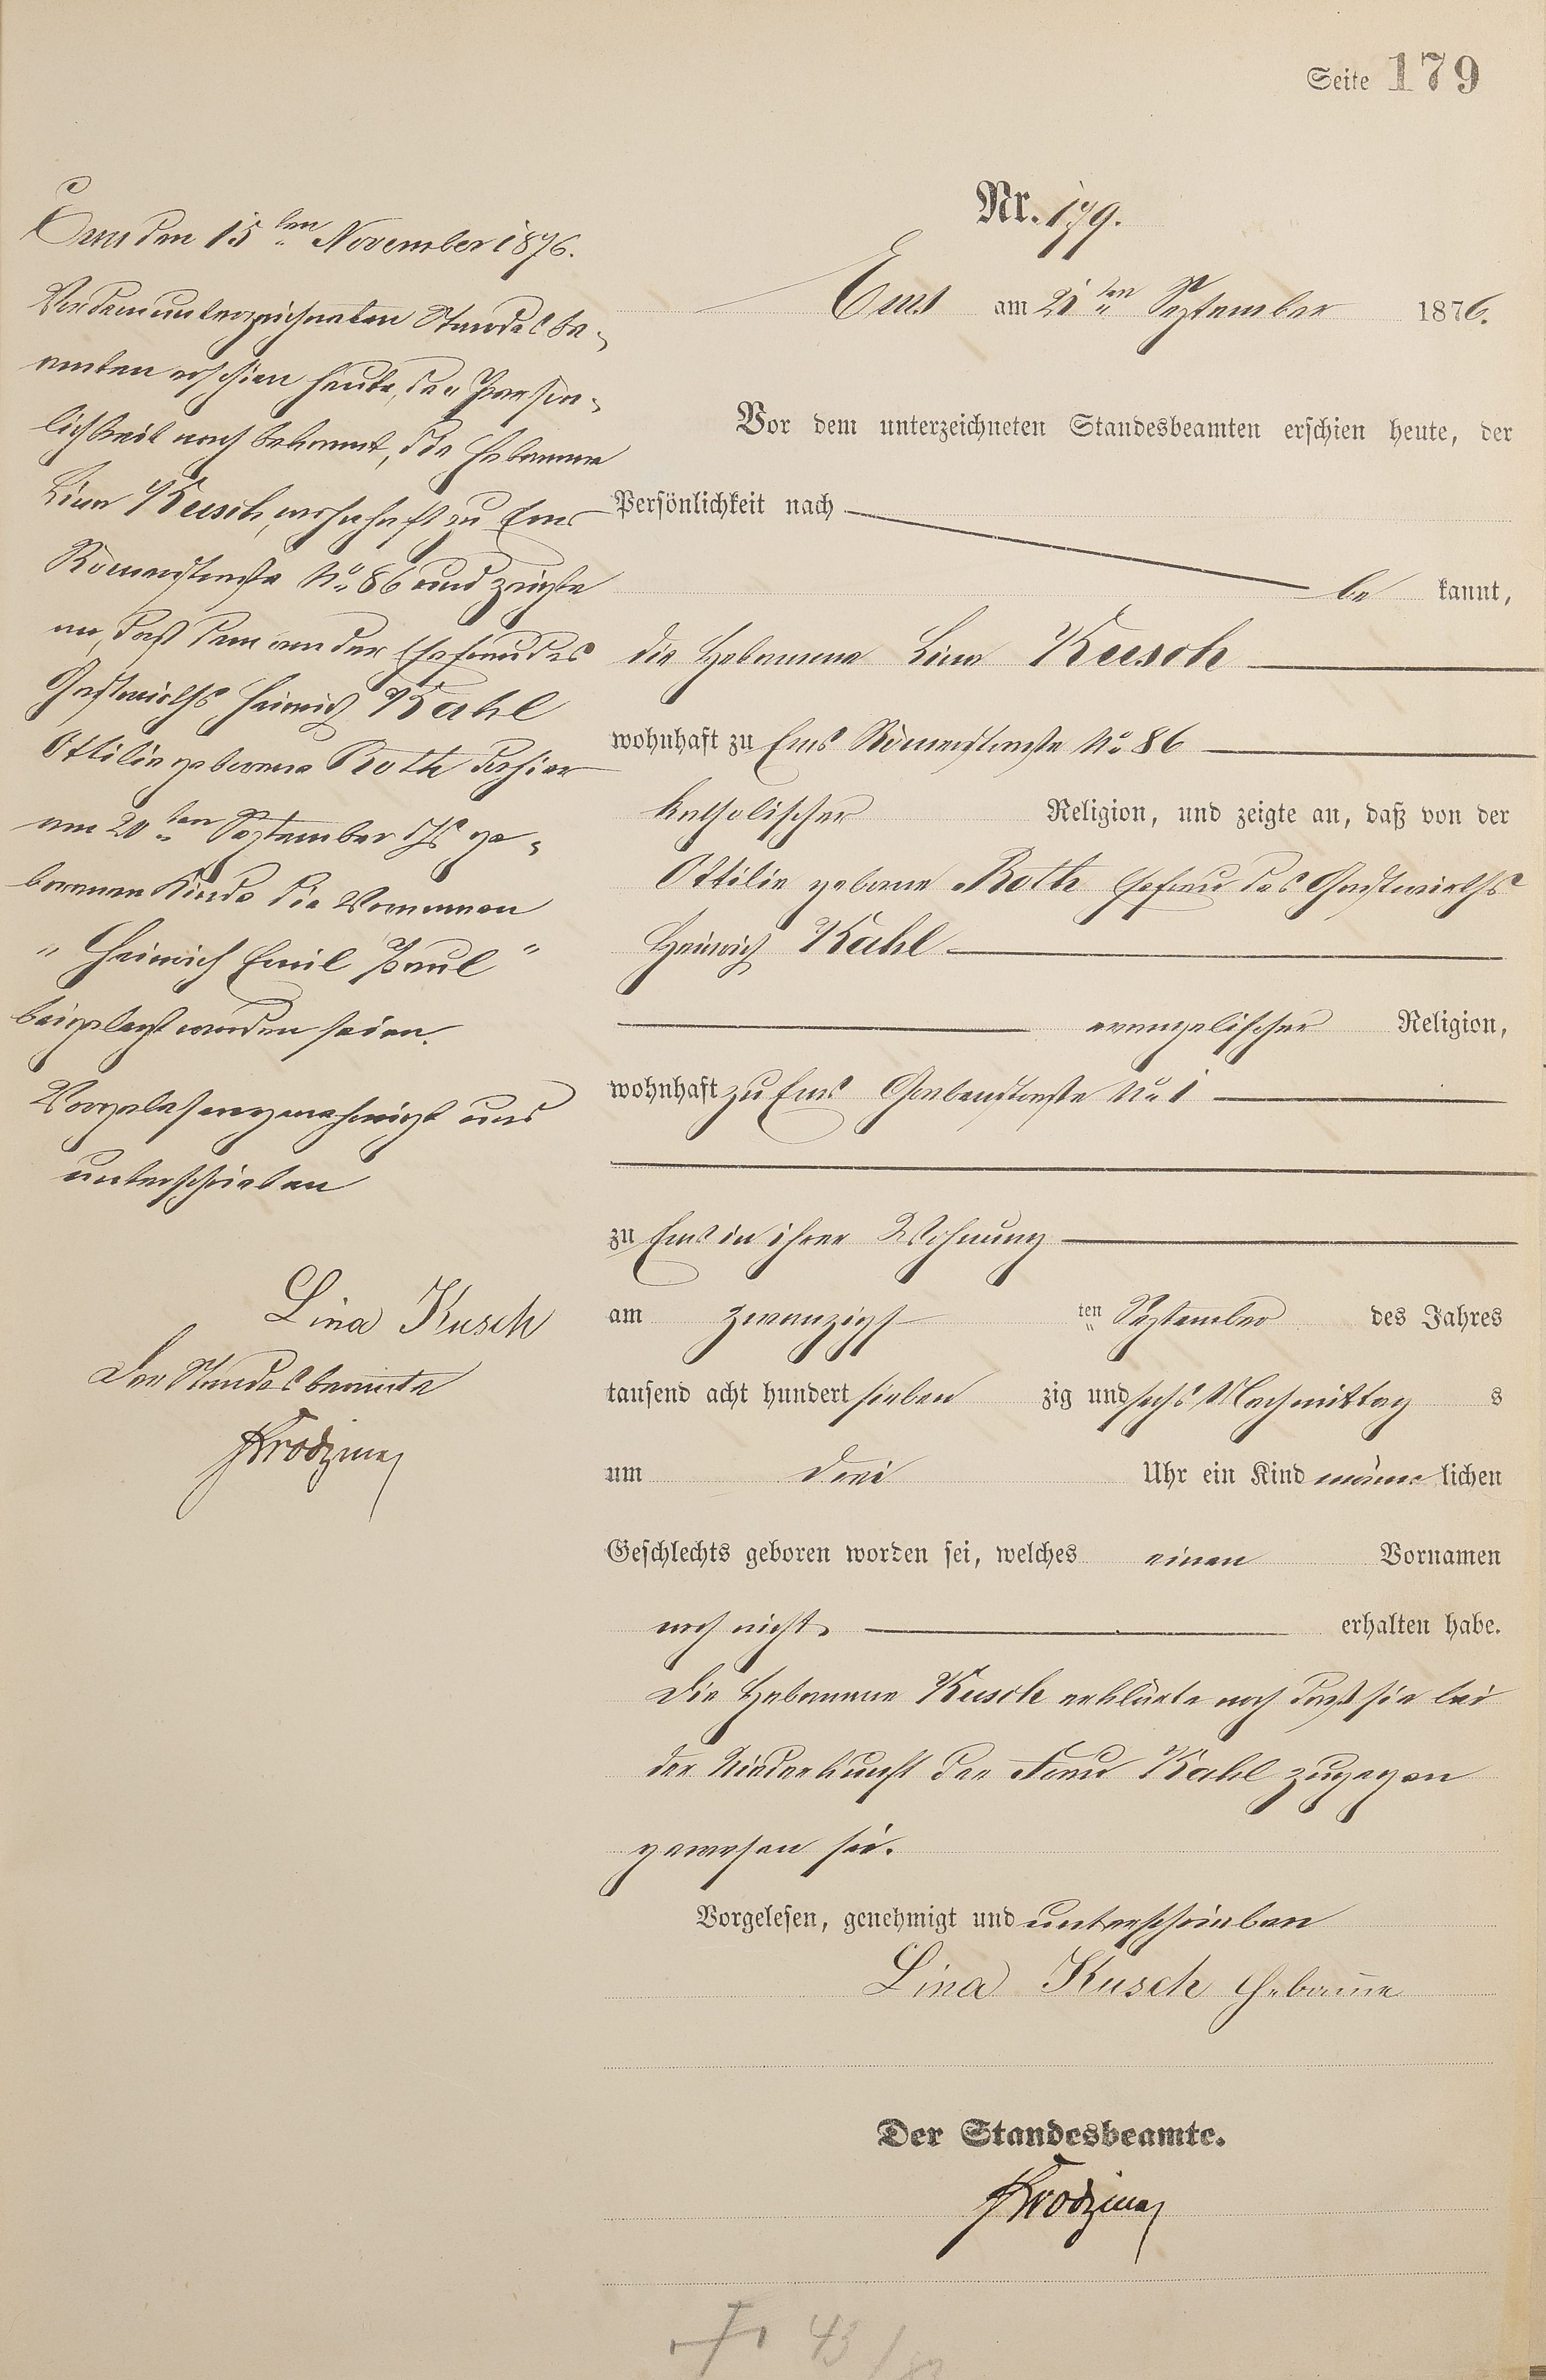 Seite 179
Nr. 179.
Ems am 21ten September 1876.
Vor dem unterzeichneten Standesbeamten erschien heute, der
Persönlichkeit nach
be kannt,
die Hebamme Lina Kusch
wohnhaft zu Ems Römerstraße No 86
katholischer Religion, und zeigte an, daß von der
Ottilie geborne Roth Ehefrau des Gastwirths
Heinrich Kahl
evangelischer Religion,
wohnhaft zu Ems Grabenstraße No 1
zu Ems in ihrer Wohnung
am zwanzigst ten September des Jahres
tausend acht hundert sieben zig und sechs Nachmittag s
um drei Uhr ein Kind männ lichen
Geschlechts geboren worden sei, welches einen Vornamen
noch nicht erhalten habe.
Die Hebamme Kusch erklärte noch daß sie bei
der Niederkunft der Frau Kahl zugegen
gewesen sei.
Vorgelesen, genehmigt und unterschrieben
Lina Kusch Hebamme
Der Standesbeamte.
Ems den 15ten November 1876.
Vor dem unterzeichneten Standesbe-
amten erschien heute, der Persön-
lichkeit nach bekannt, die Hebamme
Lina Kusch, wohnhaft zu Ems
Römerstraße No 86 und zeigte
an, daß dem von der Ehefrau des
Gastwirths Heinrich Kahl
Ottilie geborene Roth dahier
am 20ten September d Js ge-
borenen Kinde die Vornamen
"Heinrich Emil Paul"
beigelegt worden seien.
Vorgelesen genehmigt und
unterschrieben
Lina Kusch
Der Standesbeamte
43